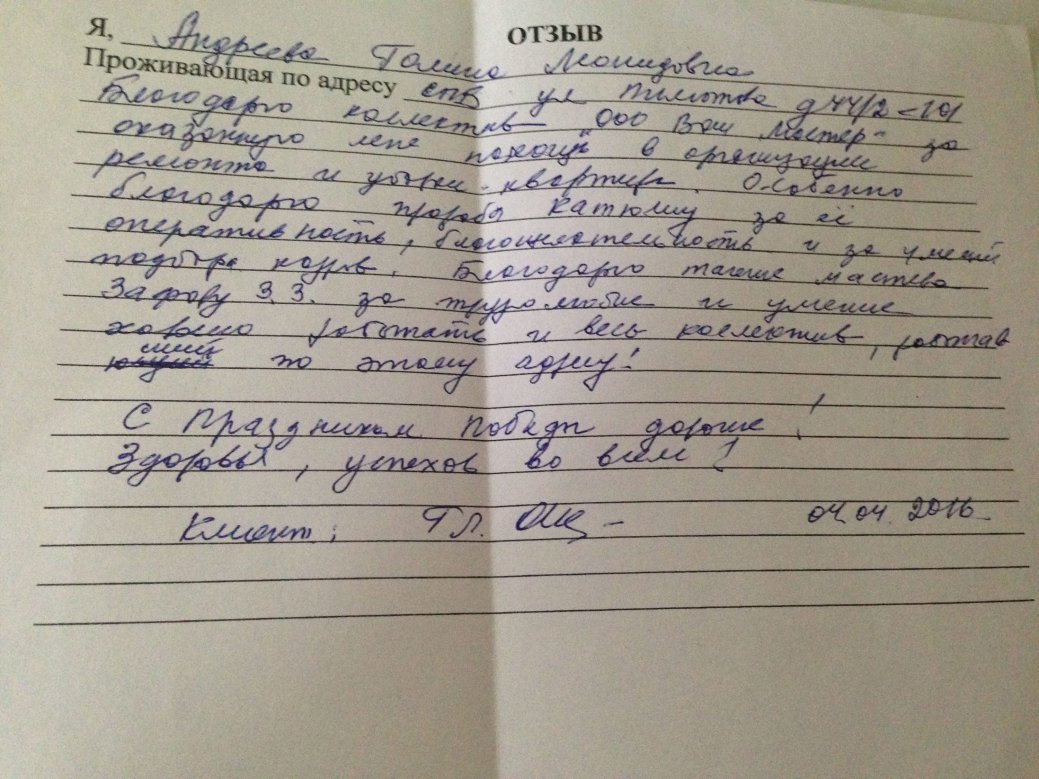 ОТЗЫВ
Я, Андреева Галина Леонидовна
Проживающая по адресу СПБ ул д 44/2 - 101
Благодарю коллектив "ООО Ваш Мастер" за
оказанную мне помощь в организации
ремонта и уборки квартиры. Особенно
благодарю прораба Катюшу за её
оперативность, благожелательность и за умение
подбора кадров. Благодарю также мастера
Зафову З.З. за трудолюбие и умение
хорошо работать и весь коллектив, работав
ший по этому адресу!
С Праздником Победы дорогие!
Здоровья, успехов во всём!
Клиент: Г.Л. 04.04.2016